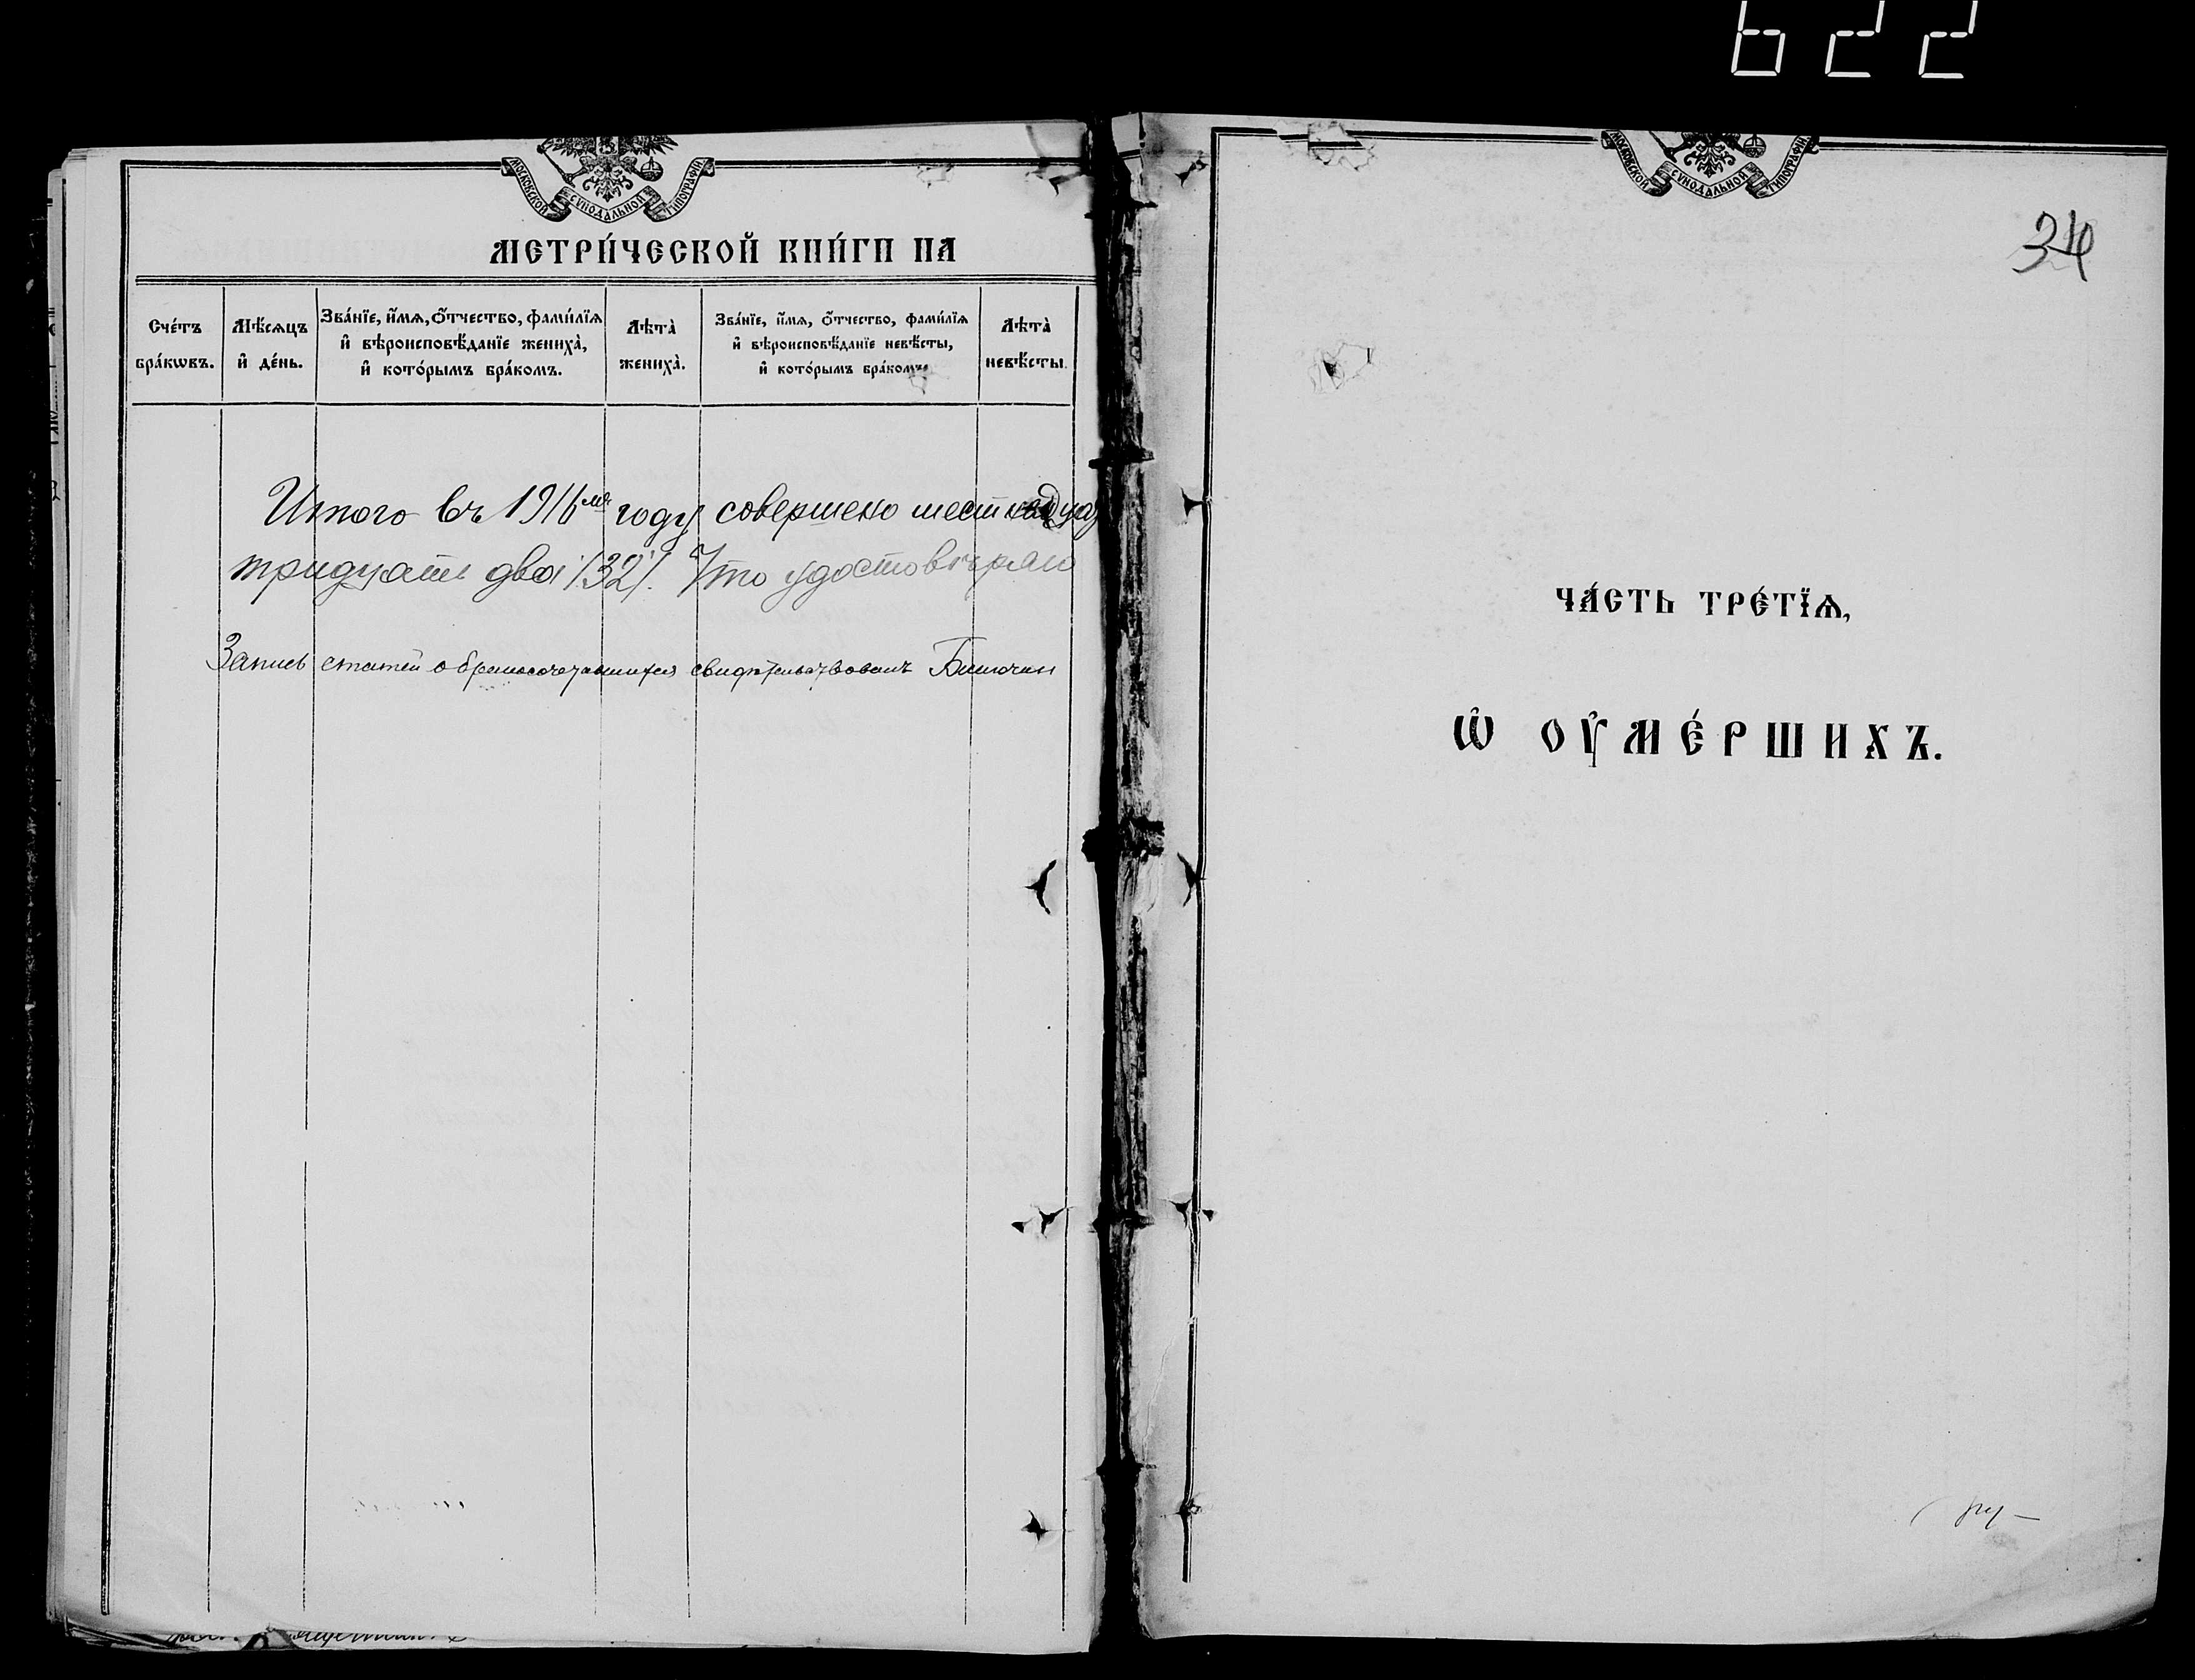 622
МОСКОВСКОЙ СУНОДАЛЬНОЙ ТИПОГРАФІИ
МЕТРИ́ЧЕСКОЙ КНИ́ГИ НА
Сче́тъ бра́кѡвъ.
Мѣ́сѧцъ и҆ де́нь.
Зва́нїе, и҆́мѧ, ѻ҆́тчество, фамѝлїѧ
и҆ вѣроисповѣ́данїе женихà,
и҆ кото́рымъ бра́комъ.
Лѣтà женихà.
Зва́нїе, и҆́мѧ, ѻ҆́тчество, фамѝлїѧ
и҆ вѣроисповѣ́данїе невѣ́сты,
и҆ кото́рымъ бра́комъ.
Лѣтà невѣ́сты.
Итого въ 1916мъ году совершено
тридцать два (32). Что удостовѣряю
Запись статей о бракосочетавшихся свидѣтельствовалъ
МОСКОВСКОЙ СУНОДАЛЬНОЙ ТИПОГРАФІИ
34
ЧА́СТЬ ТРЕ́ТЇѦ,
Ѡ҆ ОУ҆МЕ́РШИХЪ.